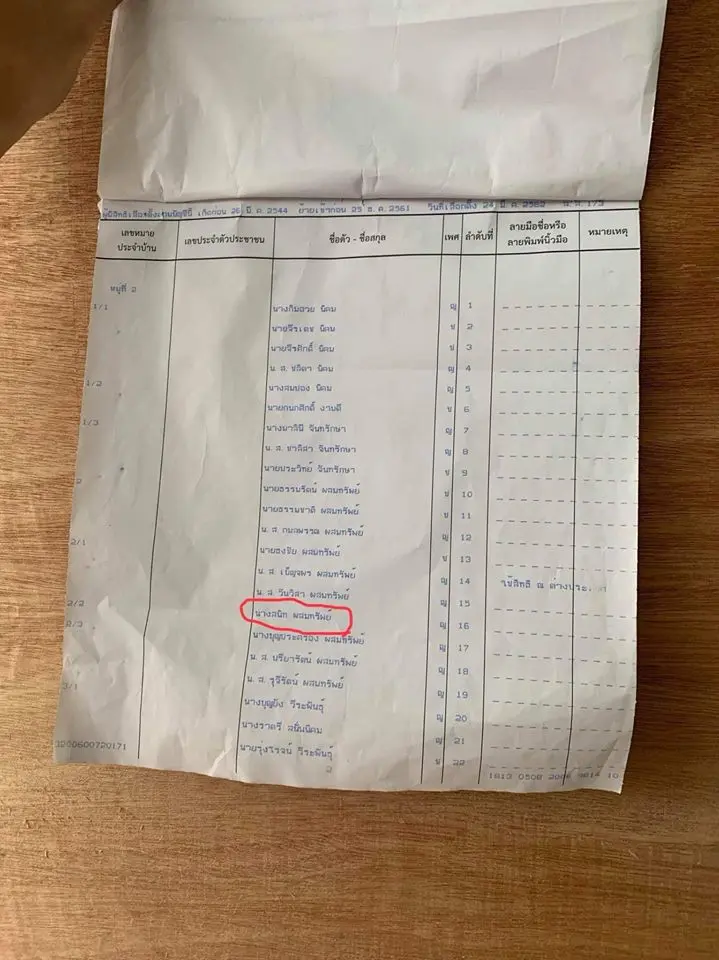 ผู้มีสิทธิเลือกตั้งตามบัญชีนี้ เกิดก่อน 26 มี.ค. 2544 ย้ายเข้าก่อน 25 ธ.ค. 2561 วันที่เลือกตั้ง 24 มี.ค. 2562 ส.ส. 1/3
เลขหมายประจำบ้าน เลขประจำตัวประชาชน ชื่อตัว - ชื่อสกุล เพศ ลำดับที่ ลายมือชื่อหรือลายพิมพ์นิ้วมือ หมายเหตุ
หมู่ที่ 2
1/1 นางกิมฮวย นิคม ญ 1
นายจีรเดช นิคม ช 2
นายจีรศักดิ์ นิคม ช 3
น.ส. ชลิดา นิคม ญ 4
1/2 นางสมปอง นิคม ญ 5
นายกนกศักดิ์ งามดี ช 6
1/3 นางมาลินี จันทรักษา ญ 7
น.ส. ชาลิสา จันทรักษา ญ 8
นายประวิทย์ จันทรักษา ช 9
2 นายธรรมรัตน์ ผสมทรัพย์ ช 10
นายธรรมชาติ ผสมทรัพย์ ช 11
น.ส. กนลพรรณ ผสมทรัพย์ ญ 12
2/1 นายธงชัย ผสมทรัพย์ ช 13
น.ส. เบ็ญจพร ผสมทรัพย์ ญ 14 ใช้สิทธิ ณ ต่างประเ
น.ส. วันวิสา ผสมทรัพย์ ญ 15
2/2 นางสนิท ผสมทรัพย์ ญ 16
2/3 นางบุญประครอง ผสมทรัพย์ ญ 17
น.ส. ปรียารัตน์ ผสมทรัพย์ ญ 18
น.ส. รุจีรัตน์ ผสมทรัพย์ ญ 19
3/1 นางบุญยัง วีระพันธุ์ ญ 20
นางราตรี สนั่นนิคม ญ 21
นายรุ่งโรจน์ วีระพันธุ์ ช 22
3200600720171 2 1013 0508 2006